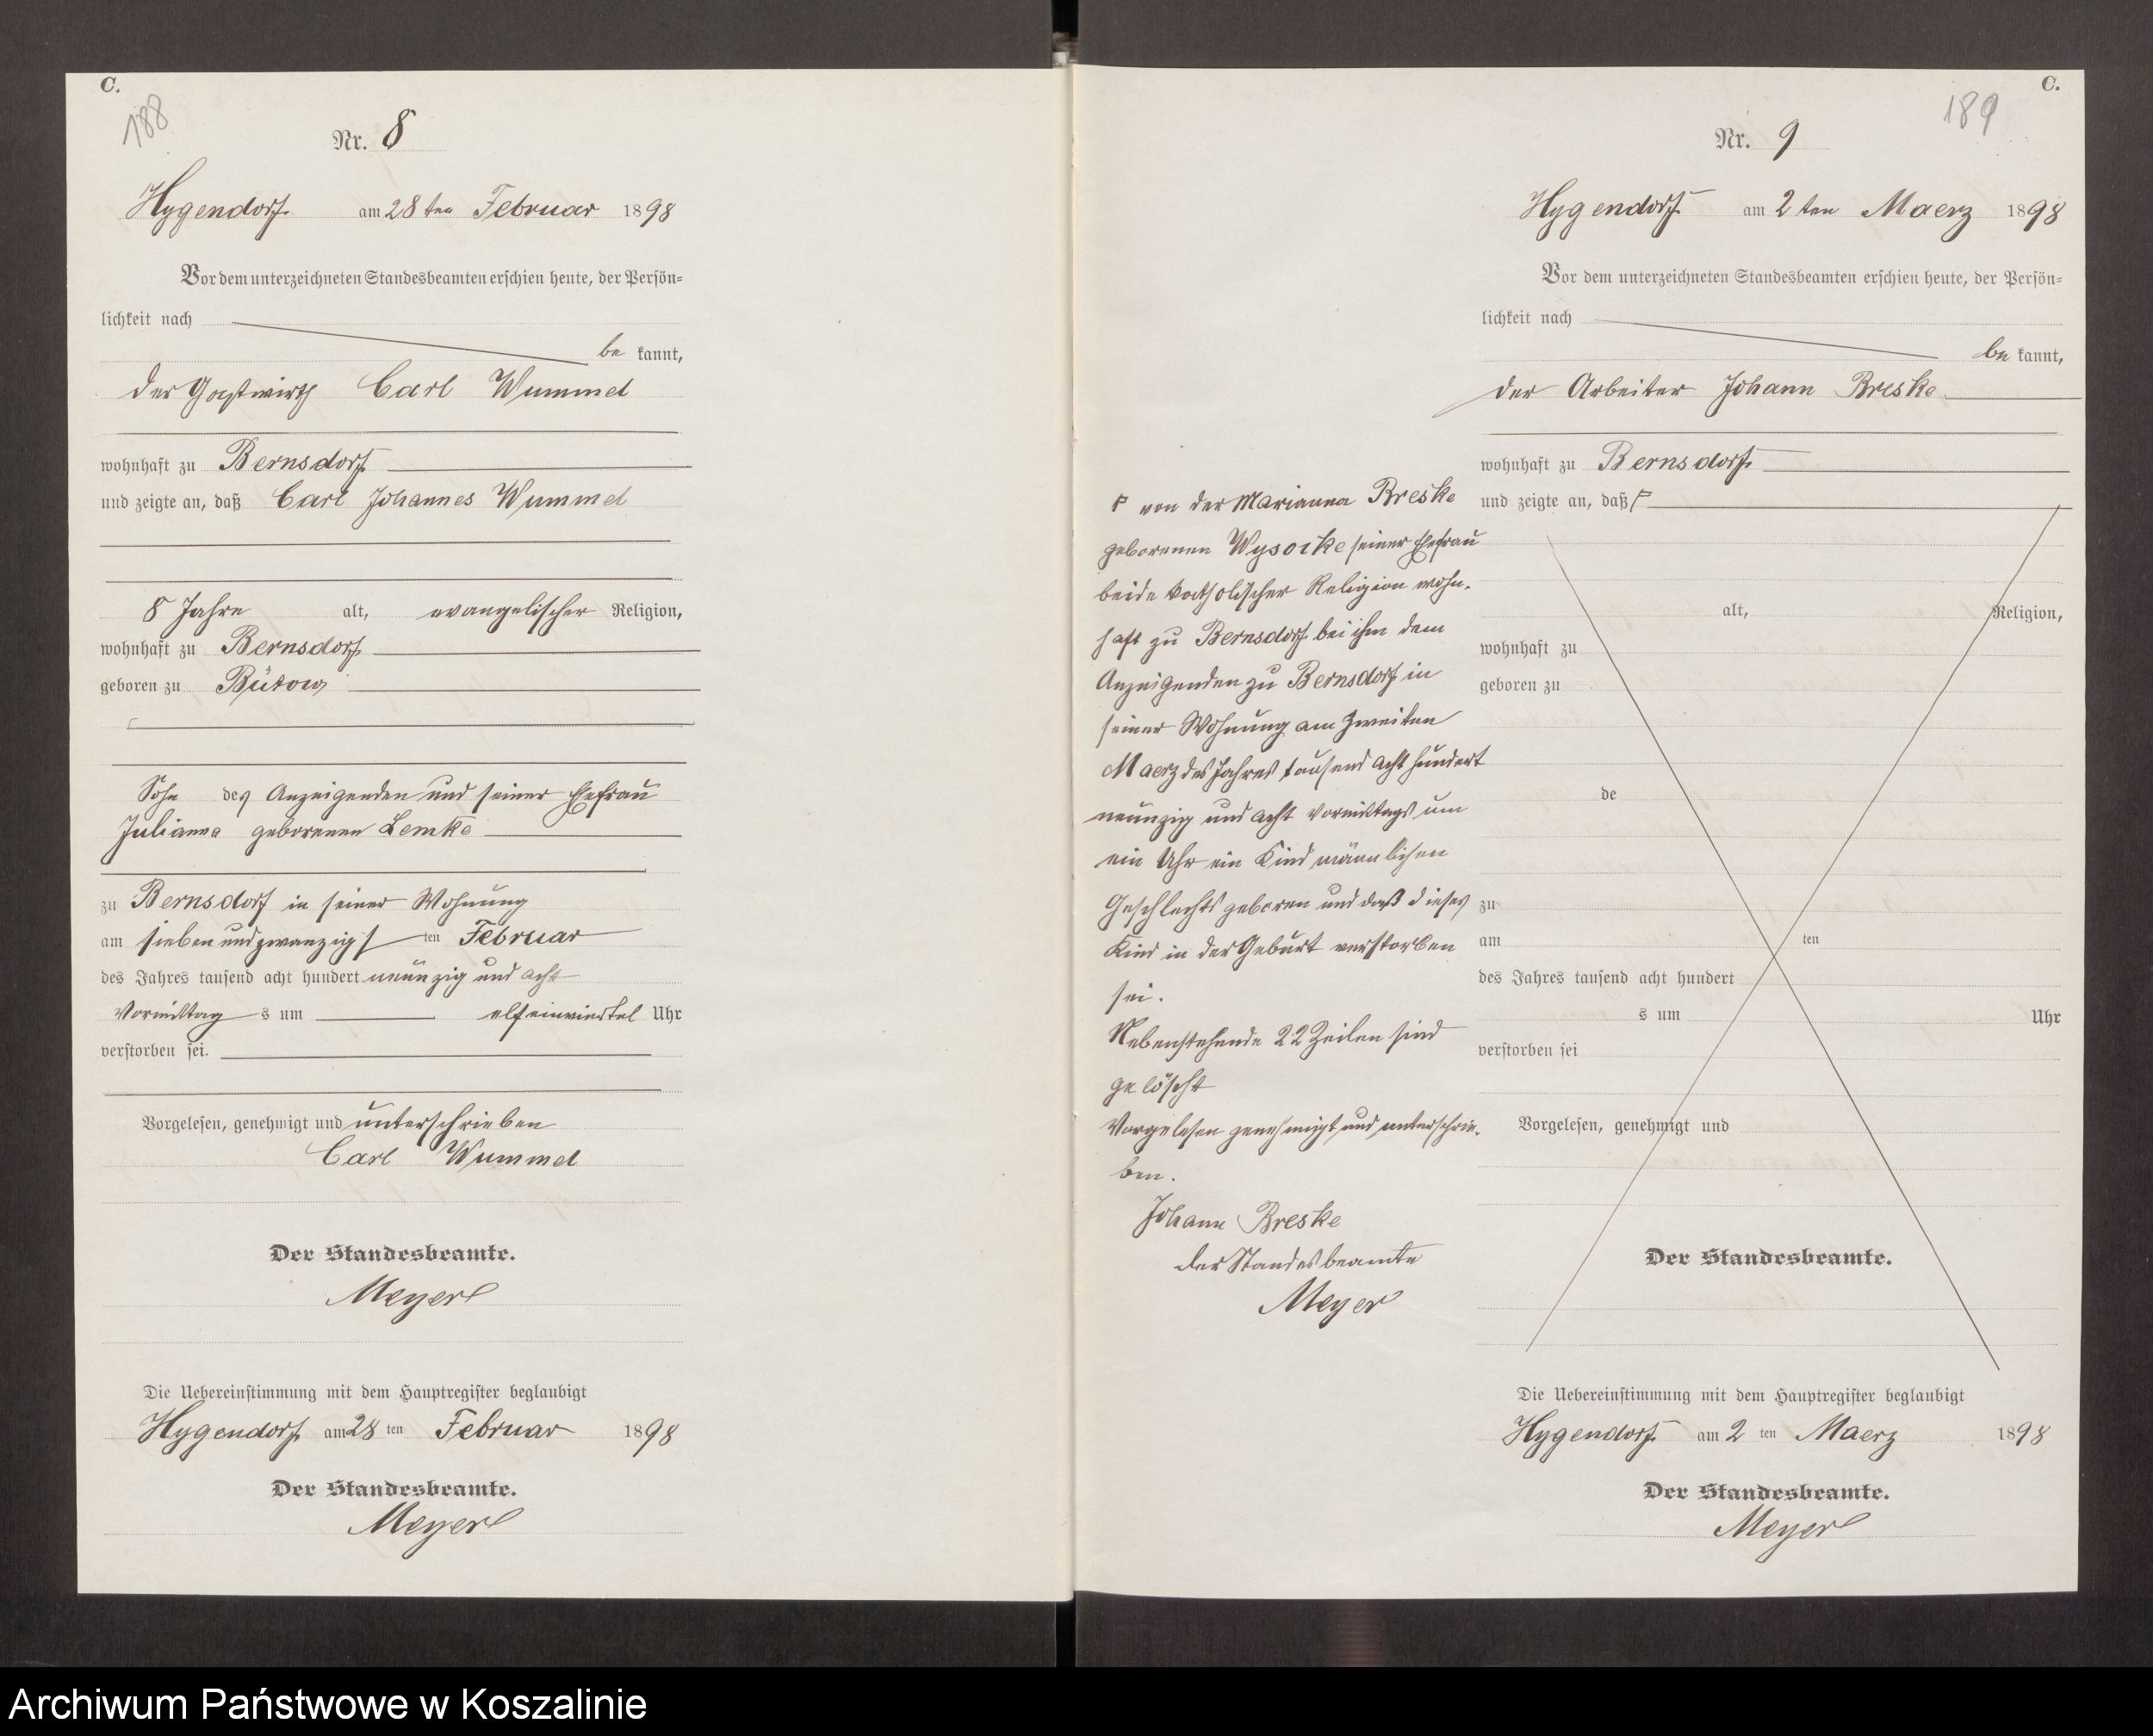 C.
188
Nr. 8
Hygendorf am 28 ten Februar 1898
Vor dem unterzeichneten Standesbeamten erschien heute, der Persön=
lichkeit nach
be kannt,
der Gastwirth Carl Wummel
wohnhaft zu Bernsdorf
und zeigte an, daß Carl Johannes Wummel
8 Jahre alt, evangelischer Religion,
wohnhaft zu Bernsdorf
geboren zu Bütow
Sohn des Anzeigenden und seiner Ehefrau
Julianna geborenen Lemke
zu Bernsdorf in seiner Wohnung
am sieben und zwanzigs ten Februar
des Jahres tausend acht hundert neunzig und acht
Vormittag s um elfeinviertel Uhr
verstorben sei.
Vorgelesen, genehmigt und unterschrieben
Carl Wummel
Der Standesbeamte.
Meyer
Die Uebereinstimmung mit dem Hauptregister beglaubigt
Hygendorf am 28 ten Februar 1898
Der Standesbeamte.
Meyer
C.
189
Nr. 9
Hygendorf am 2 ten Maerz 1898
Vor dem unterzeichneten Standesbeamten erschien heute, der Persön=
lichkeit nach
be kannt,
der Arbeiter Johann Breske
wohnhaft zu Bernsdorf
und zeigte an, daß
von der Marianna Breske
geborenen Wysocke seiner Ehefrau
beide katholischer Religion wohn-
haft zu Bernsdorf bei ihm dem
Anzeigenden zu Bernsdorf in
seiner Wohnung am zweiten
Maerz des Jahres tausend acht hundert
neunzig und acht Vormittags um
ein Uhr ein Kind männlichen
Geschlechts geboren und daß dieses
Kind in der Geburt verstorben
sei.
Nebenstehende 22 Zeilen sind
gelöscht
Vorgelesen genehmigt und unterschrie-
ben.
Johann Breske
der Standesbeamte
Meyer
alt, Religion,
wohnhaft zu
geboren zu
de
zu
am ten
des Jahres tausend acht hundert
s um Uhr
verstorben sei
Vorgelesen, genehmigt und
Der Standesbeamte.
Die Uebereinstimmung mit dem Hauptregister beglaubigt
Hygendorf am 2 ten Maerz 1898
Der Standesbeamte.
Meyer
Archiwum Państwowe w Koszalinie